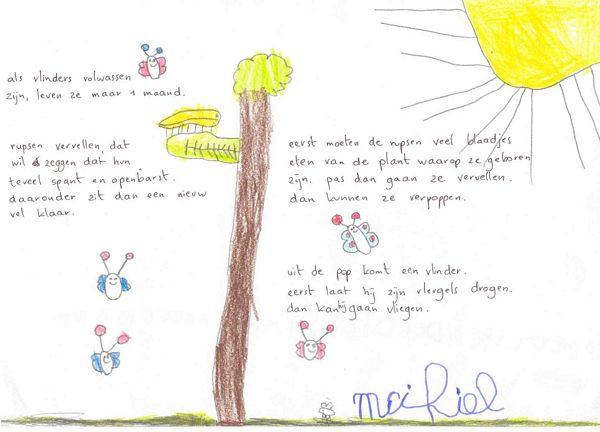 als vlinders volwassen
zijn, leven ze maar 1 maand.
rupsen vervellen, dat
wil zeggen dat hun
teveel spant en openbarst.
daaronder zit dan een nieuw
vel klaar.
eerst moeten de rupsen veel blaadjes
eten van de plant waarop ze geboren
zijn. pas dan gaan ze vervellen.
dan kunnen ze verpoppen.
uit de pop komt een vlinder.
eerst laat hij zijn vleugels drogen.
dan kan hij gaan vliegen.